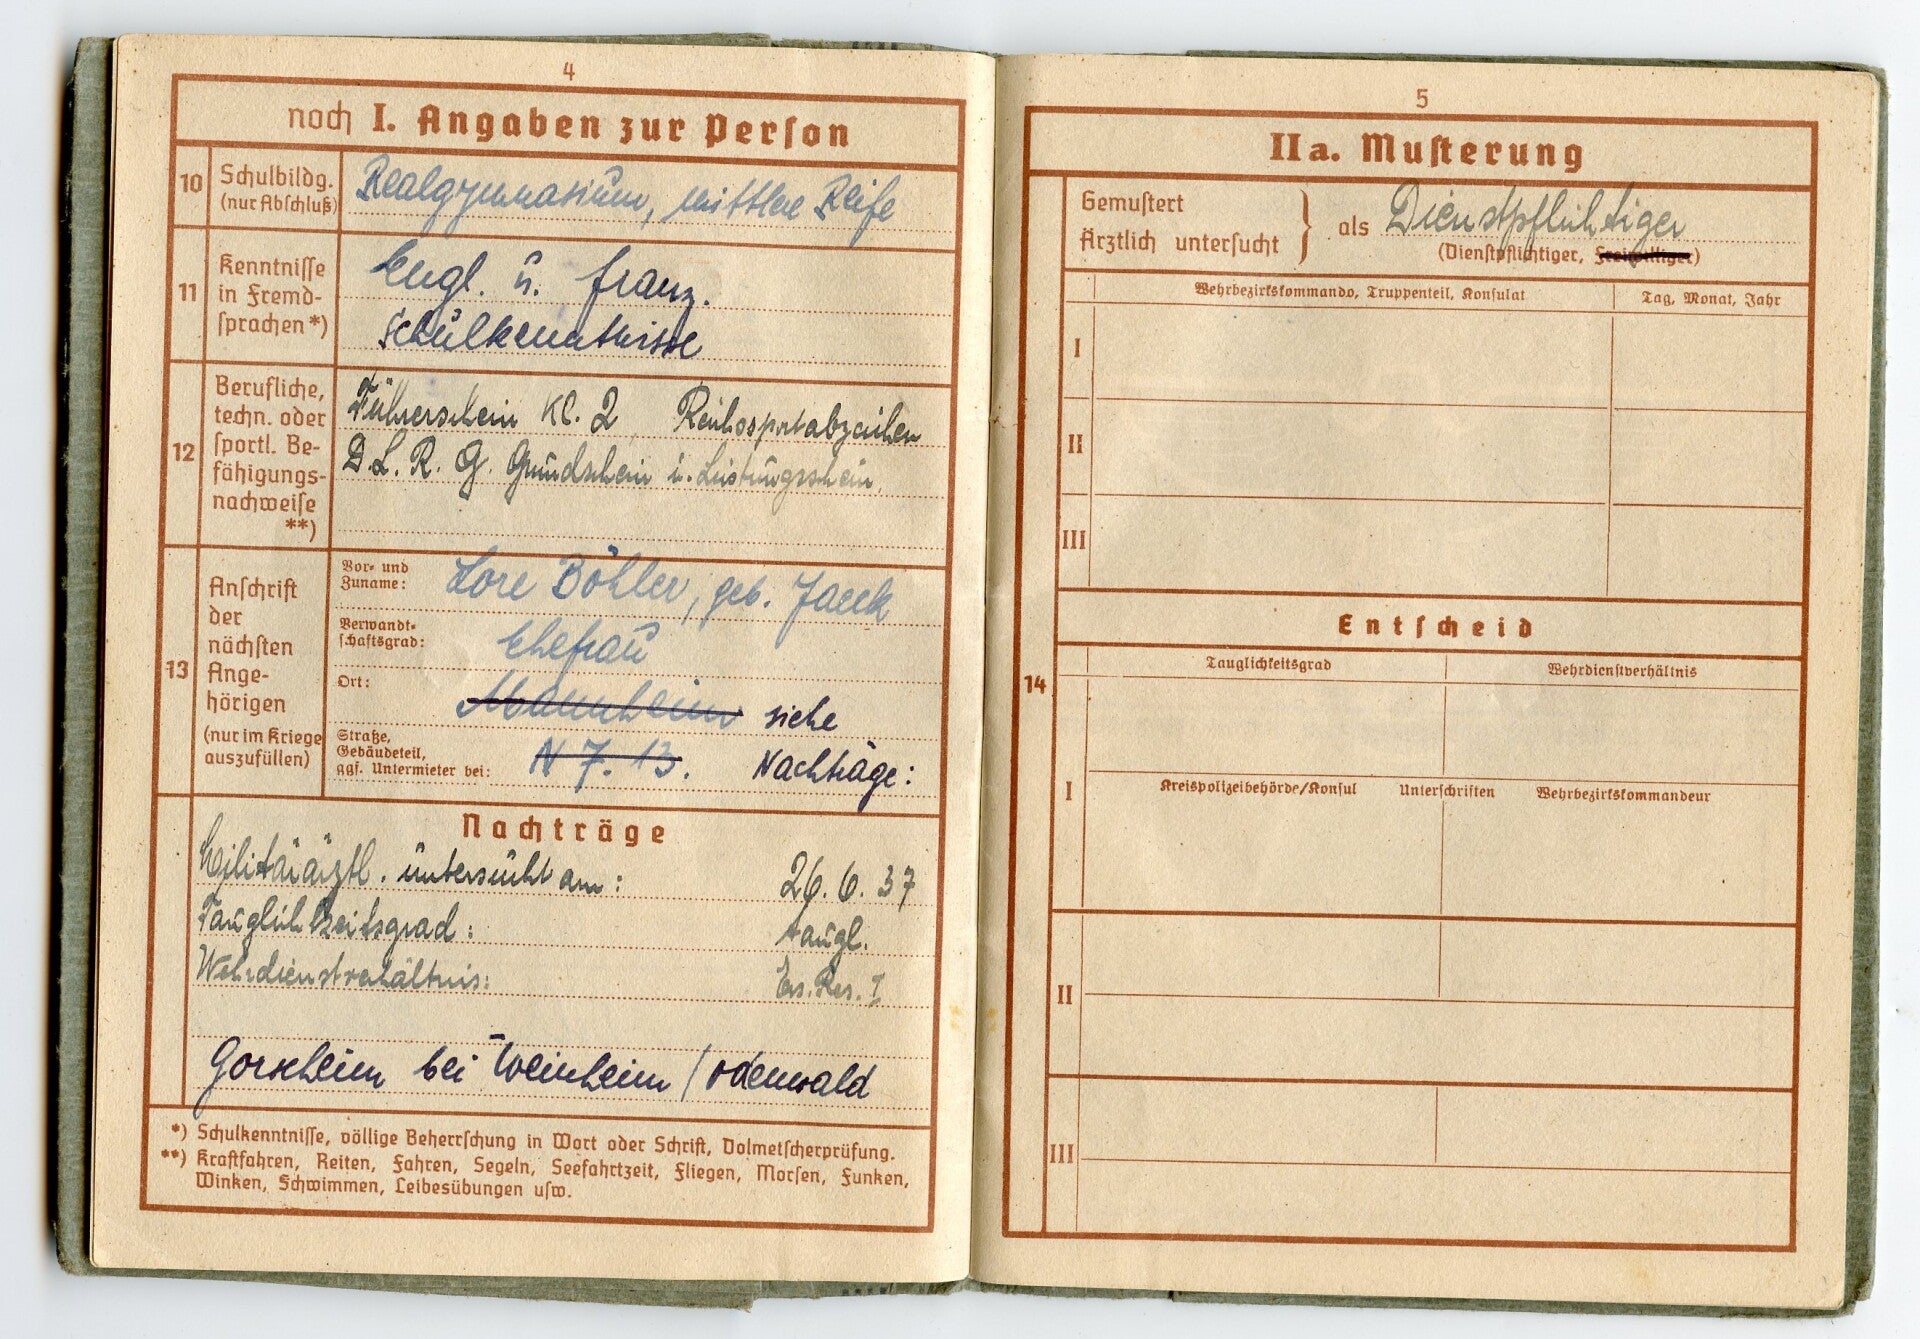 4
noch I. Angaben zur Person
10 Schulbildg. (nur Abschluß)
Realgymnasium, mittlere Reife
11 Kenntnisse in Fremd-
sprachen *)
Engl. u. franz.
Schulkenntnisse
12 Berufliche,
techn. oder
sportl. Be-
fähigungs-
nachweise
**)
Führerschein Kl. 2 Reichssportabzeichen
D.L.R.G. Grundschein u. Leistungsschein.
13 Anschrift
der
nächsten
Ange-
hörigen
(nur im Kriege
auszufüllen)
Vor- und
Zuname:
Lore Böhler, geb. Jaeck
Verwandt-
schaftsgrad:
Ehefrau
Ort:
Mannheim siehe
Straße,
Gebäudeteil,
ggf. Untermieter bei:
N 7. 13. Nachträge:
Nachträge
Militärärztl. untersucht am: 26. 6. 37
Tauglichkeitsgrad: taugl.
Wehrdienstverhältnis: Ers. Res. I
Gorxheim bei Weinheim / Odenwald
*) Schulkenntnisse, völlige Beherrschung in Wort oder Schrift, Dolmetscherprüfung.
**) Kraftfahren, Reiten, Fahren, Segeln, Seefahrtzeit, Fliegen, Morsen, Funken,
Winken, Schwimmen, Leibesübungen usw.
5
II a. Musterung
Gemustert
Ärztlich untersucht } als Dienstpflichtiger
(Dienstpflichtiger, Freiwilliger)
Wehrbezirkskommando, Truppenteil, Konsulat Tag, Monat, Jahr
I
II
III
Entscheid
14
Tauglichkeitsgrad Wehrdienstverhältnis
I
Kreispolizeibehörde/Konsul Unterschriften Wehrbezirkskommandeur
II
III